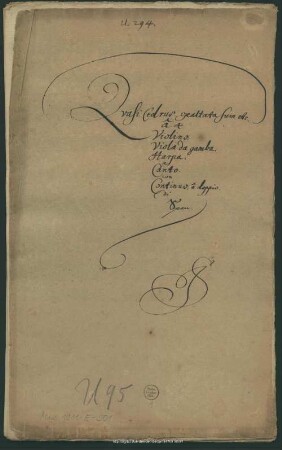 U. 294.
Quasi Cedrus exaltata sum etc
à 4
Violino.
Viola da gamba.
Harpa.
Canto.
con
Continuo à doppio
di
U 95
Mus. 1871/E-501